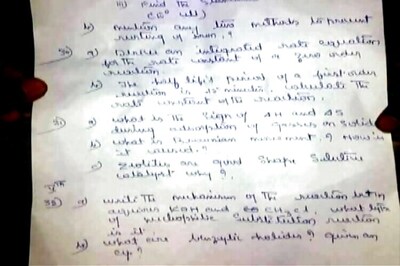 iii) Find the
CE° cell)
b) mention any two methods to prevent
rusting of iron.?
a) Derive an integrated rate equation
for the rate constant of a zero order
reaction.
b) The half life period of a first order
reaction is 15 minutes. calculate the
rate constant of the reaction.
31) a) what is the sign of ΔH and ΔS
during adsorption of gasses on solids
b) what is Brownian movement? How is
it caused.?
c) Zeolites are good shape selective
catalyst why?
33) a) write the mechanism of the reaction between
aqueous KOH and CH3Cl. what type
of nucleophilic substitution reaction
is it.
b) what are benzylic halides? given an
eg?